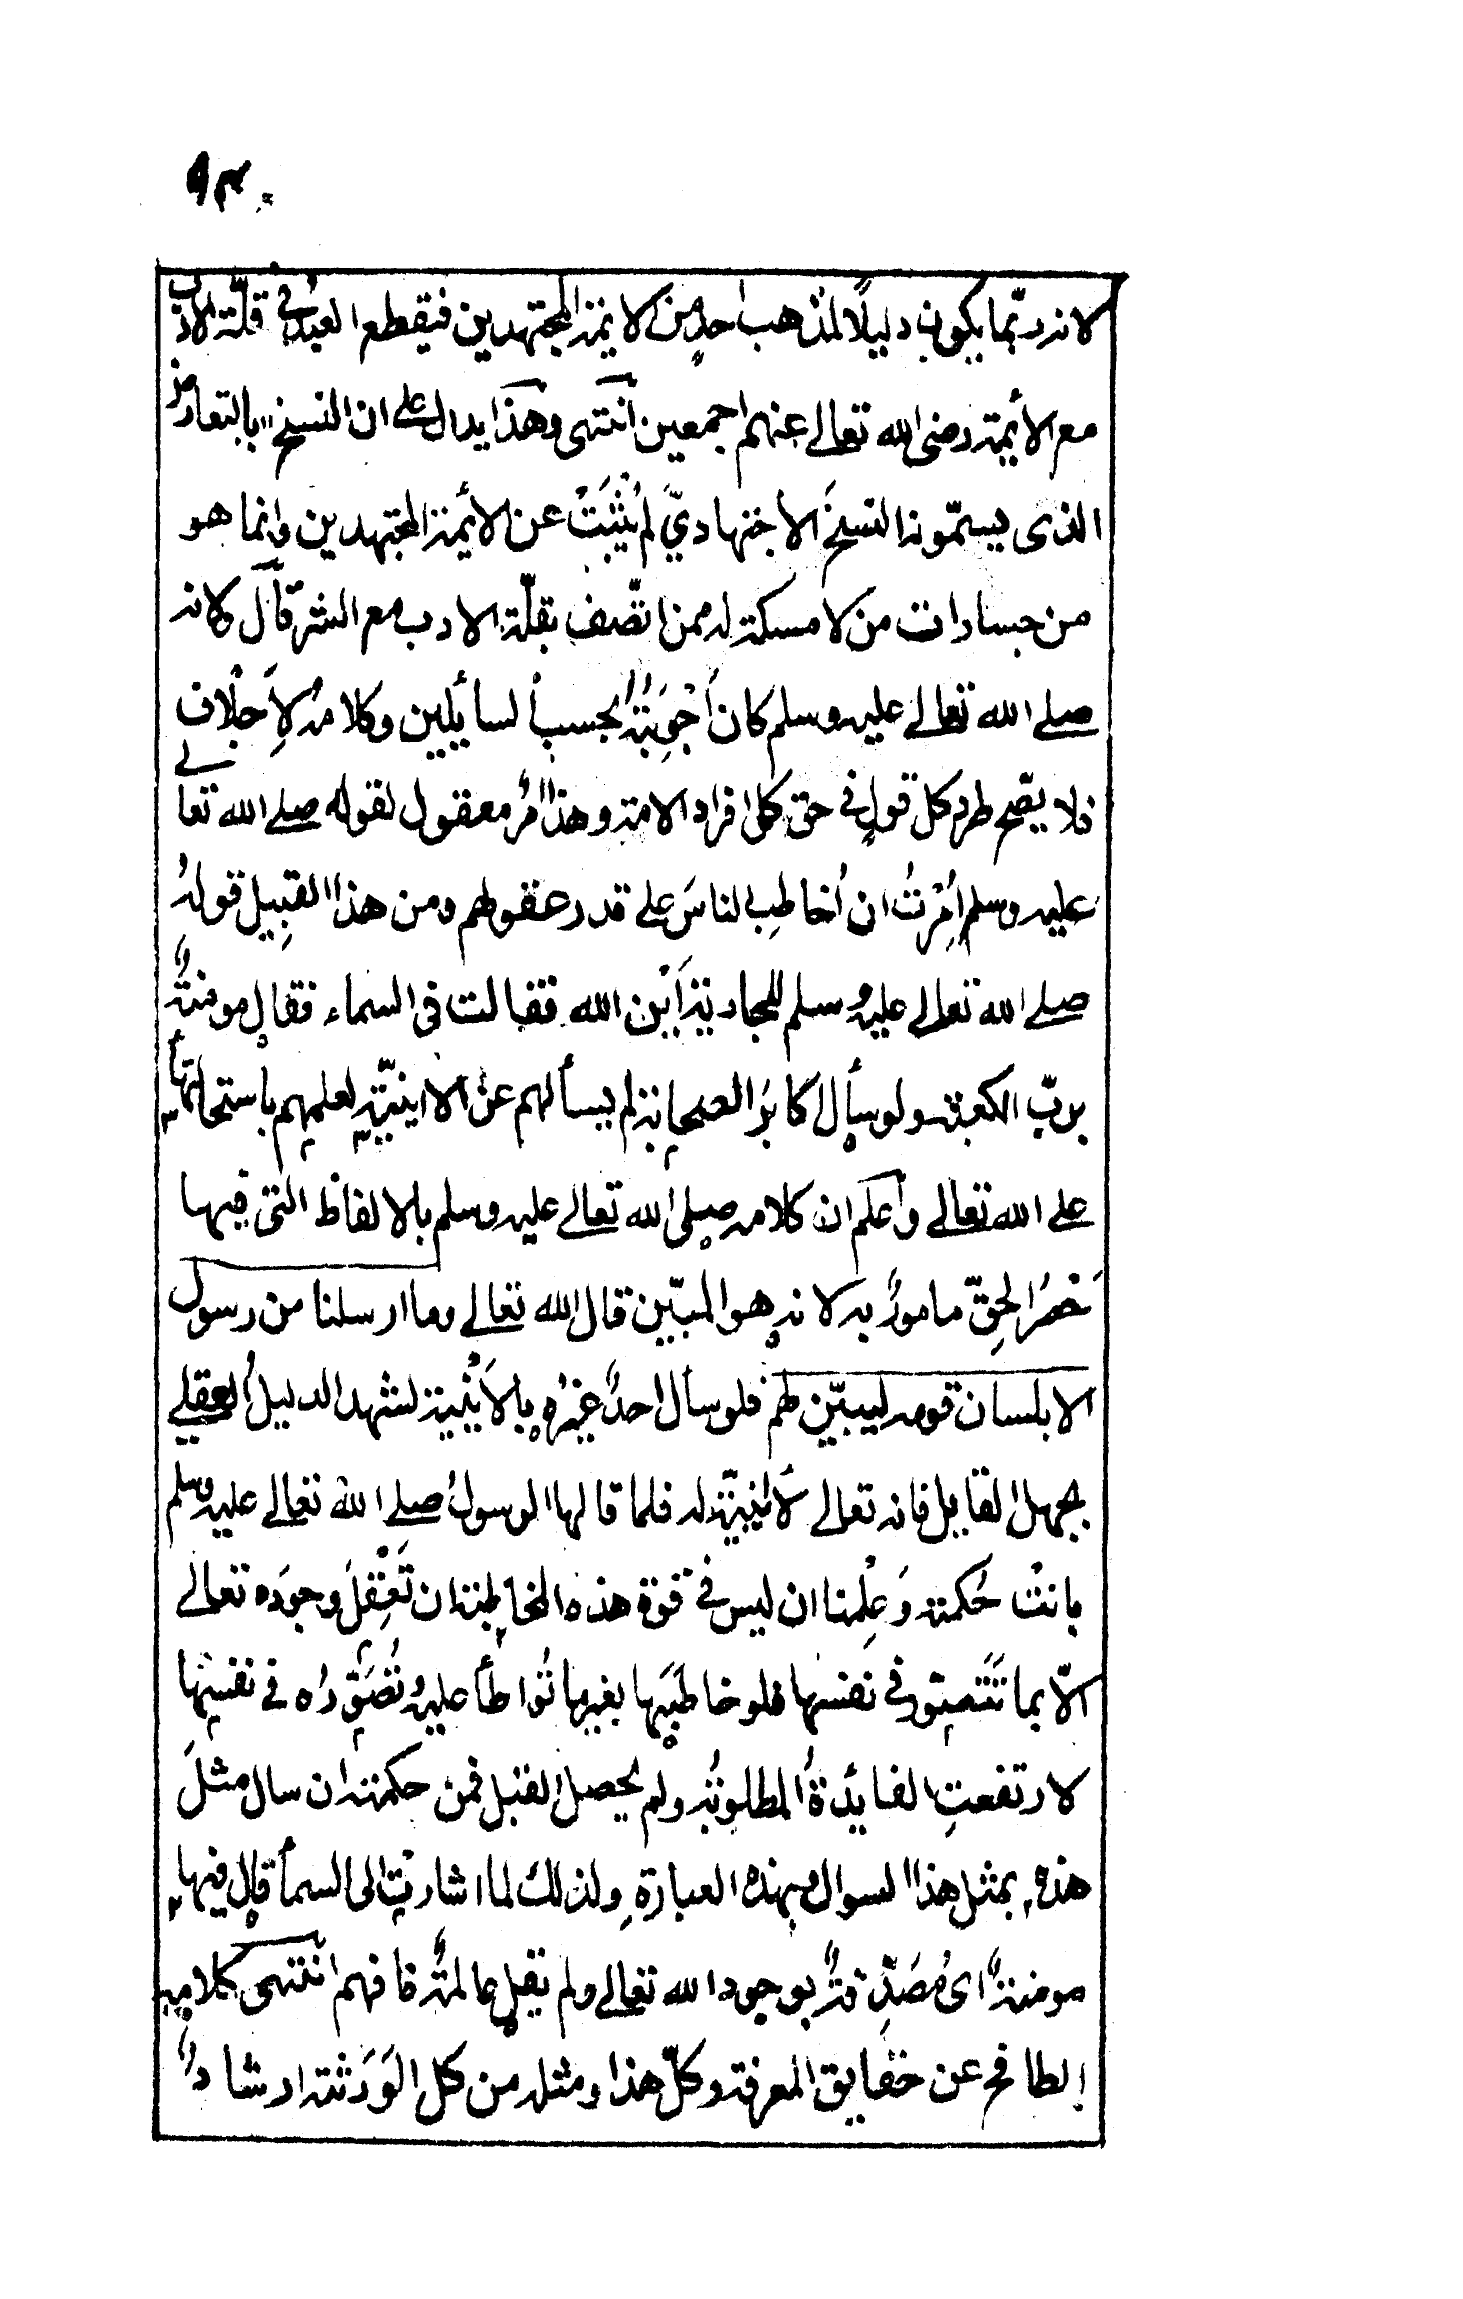 ٩٣
لانه ربّما يكون دليلًا لمذهب احدٍ من الايمة المجتهدين فيقطع العبد في قلّة الادب
مع الأيمة رضى الله تعالى عنهم اجمعين انتهى وهذا يدل على ان النسخ بالتعارض
الذى يسمّونه النسخَ الاجتهاديّ لم يَثْبَتْ عن الأيمة المجتهدين وانما هو
من جسارات من لا مسكة له ممن اتّصف بقلّة الادب مع الشرع قال ولانه
صلى الله تعالى عليه وسلم كان اَجْوِبَتُه بحسب السايلين وكلامه لأجلاف
فلا يصّح طرد كل قولٍ في حق كل افراد الامة وهذا امرٌ معقول لقوله صلى الله تعالى
عليه وسلم اُمِرْتُ ان اُخاطِب الناسَ على قدر عقولهم ومن هذا القَبِيل قولهُ
صلى الله تعالى عليه وسلم للجارية اَيْن الله فقالت فى السماء فقال مومنةٌ
بربّ الكعبة ولو سأل اكابرَ الصحابة لم يسألهم عن الاينيّة لعلمهم باستحالتها
على الله تعالى وأعلم ان كلامه صلى الله تعالى عليه وسلم بالالفاظ التى فيها
حَصْرُ الحقّ مامورٌ به لانه هو المبيّن قال الله تعالى وما ارسلنا من رسول
الا بلسان قومه ليبيّن لهم فلو سأل احدٌ غيرُه بالأَيْنية لشهد الدليلُ العقلى
بجهل القايل فانه تعالى لا اينيّة له فلما قالها الرسولُ صلى الله تعالى عليه وسلم
بانتْ حُكمته وَعَلِمْنا ان ليس فى قوة هذه المخاطبة ان تَعْقِلَ وجوَده تعالى
الّا بما تَتَصوّر فى نفسها فلو خاطبَها بغير ما تُواطأ عليه وتُصَوّرُه فى نفسِها
لارتفعتِ الفايدةُ المطلوبةُ ولم يحصل القبل فمن حكمته ان سال مثلَ
هذه بمثل هذا السوال وبهذه العبارة ولذلك لما اشارت الى السمأ قال فيها
مومنةٌ اى مُصَدِّقةٌ بوجود الله تعالى ولم يقل عالمةٌ فافهم انتهى كلامه
الطافح عن حقايق المعرفة وكلّ هذا ومثله من كل الوَرَثته ارشادٌ